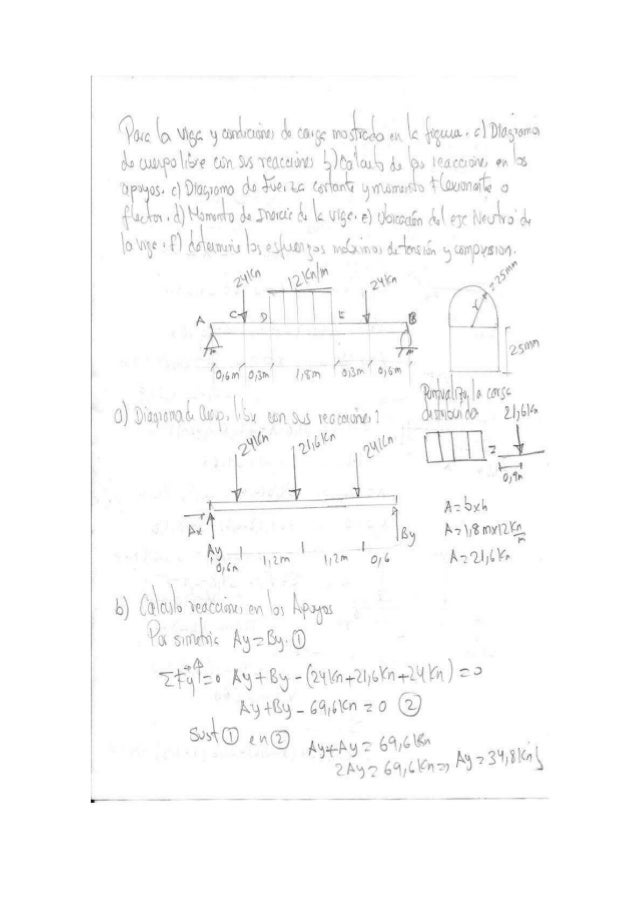 Para la viga y condiciones de carga mostrada en la figura. a) Diagrama
de cuerpo libre con sus reacciones b) Calculo de las reacciones en los
apoyos. c) Diagrama de Fuerza cortante y momento Flexionante o
flector. d) Momento de Inercia de la viga. e) Ubicación del eje Neutro de
la viga. f) determine los esfuerzos máximos de tensión y compresión.
24Kn 12Kn/m 24Kn
A C D E B
0,6m 0,3m 1,8m 0,3m 0,6m
r=25mm
25mm
la carga
distribuida 21,6Kn
=
0,9m
A=bxh
A=1,8mx12Kn/m
A=21,6Kn
a) Diagrama de Cuerpo libre con sus reacciones:
24Kn 21,6Kn 24Kn
Ax
Ay By
0,6m 1,2m 1,2m 0,6
b) Calculo reacciones en los Apoyos
Por simetría Ay=By. ①
ΣFy=0 Ay+By-(24Kn+21,6Kn+24Kn)=0
Ay+By-69,6Kn=0 ②
Sust ① en ② Ay+Ay=69,6Kn
2Ay=69,6Kn=> Ay=34,8Kn